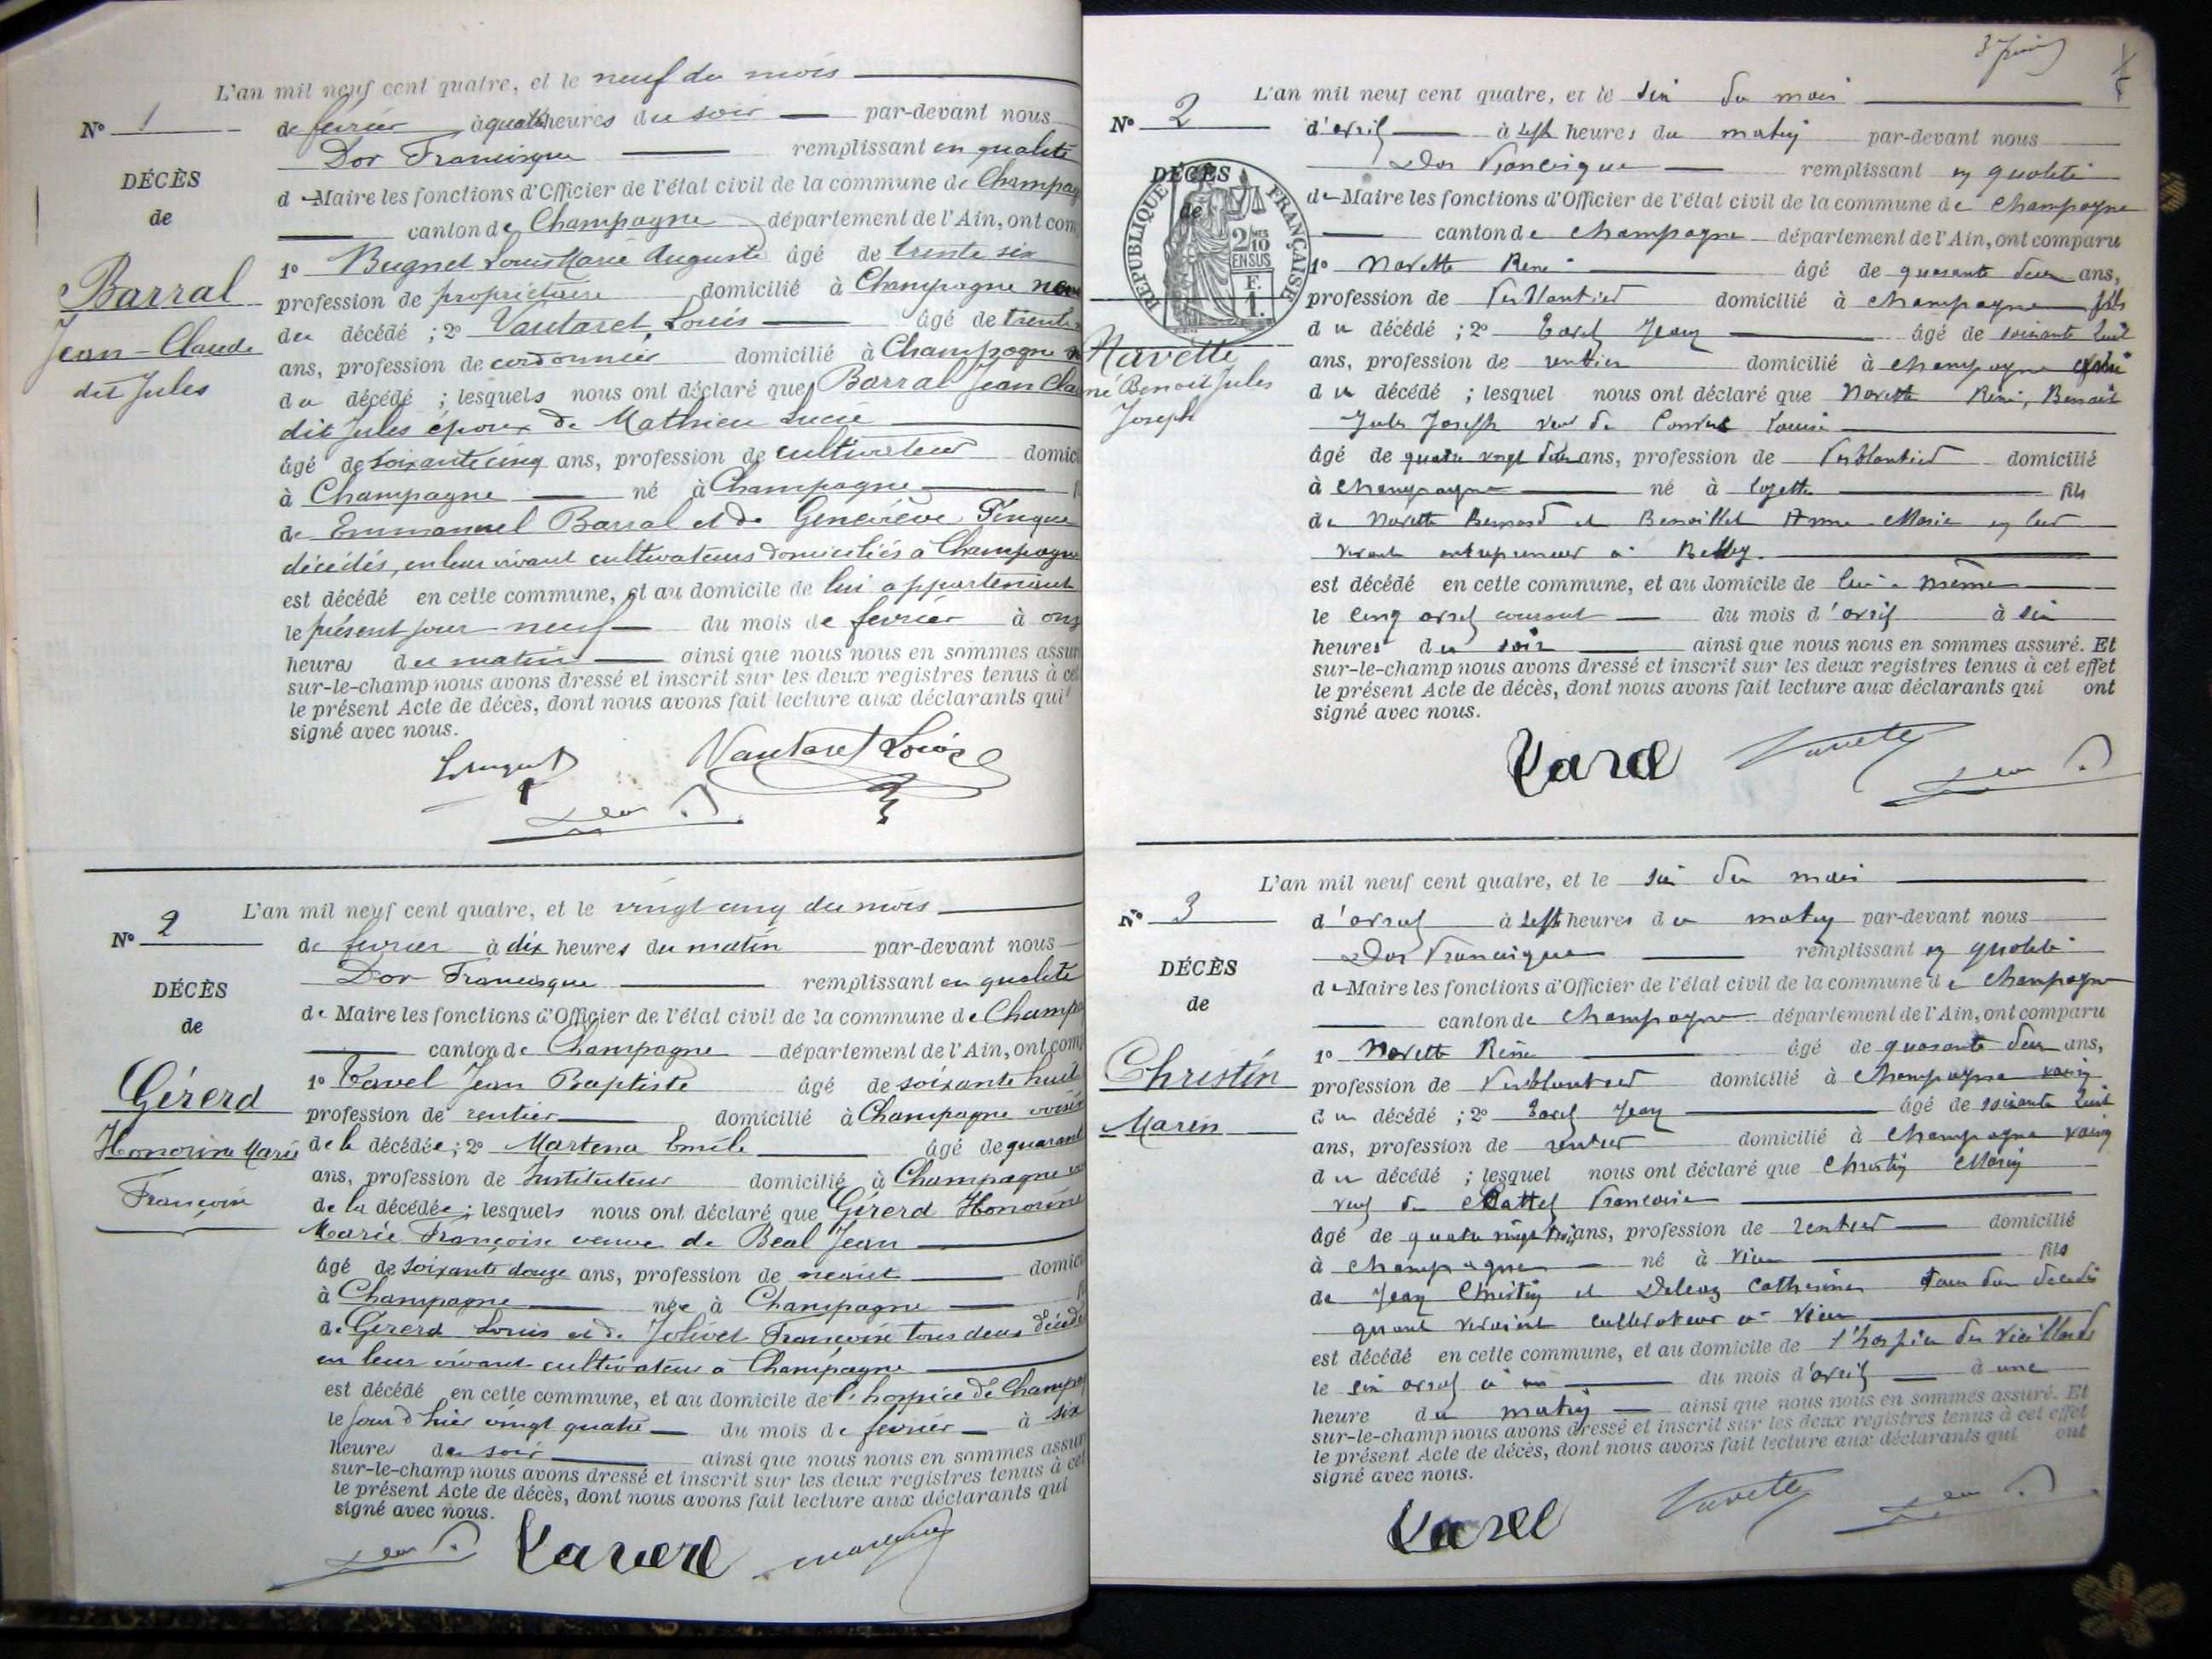 L'an mil neuf cent quatre, et le neuf du mois
N° 1
de février à quatre heures du soir par-devant nous
Dor Francisque remplissant en qualité
DÉCÈS
de Maire les fonctions d'Officier de l'état civil de la commune de Champag
de
canton de Champagne département de l'Ain, ont com
1° Bugnet Louis Marie Auguste âgé de trente six
Barral
profession de propriétaire domicilié à Champagne neveu
Jean-Claude
du décédé ; 2° Vautaret Louis âgé de trente
dit Jules
ans, profession de cordonnier domicilié à Champagne
du décédé ; lesquels nous ont déclaré que Barral Jean Clau
dit Jules époux de Mathieu Lucie
âgé de soixante cinq ans, profession de cultivateur domici
à Champagne né à Champagne
de Emmanuel Barral et de Geneviève Pingue
décédés, en leur vivant cultivateurs domiciliés à Champagne
est décédé en cette commune, et au domicile de lui appartenant
le présent jour neuf du mois de février à onz
heures du matin ainsi que nous nous en sommes assur
sur-le-champ nous avons dressé et inscrit sur les deux registres tenus à cet
le présent Acte de décès, dont nous avons fait lecture aux déclarants qui
signé avec nous.
LBugnet Vautaret Louis
Dor F.
L'an mil neuf cent quatre, et le vingt cinq du mois
N° 2
de février à dix heures du matin par-devant nous
Dor Francisque remplissant en qualité
DÉCÈS
de Maire les fonctions d'Officier de l'état civil de la commune de Champa
de
canton de Champagne département de l'Ain, ont comp
1° Tavel Jean Baptiste âgé de soixante huit
Gérerd
profession de rentier domicilié à Champagne voisin
Honorine Marie
de la décédée ; 2° Martena Emile âgé de quarant
ans, profession de Instituteur domicilié à Champagne
Françoise
de la décédée ; lesquels nous ont déclaré que Gérerd Honorine
Marie Françoise veuve de Beal Jean
âgé de soixante douze ans, profession de néant domici
à Champagne née à Champagne
de Gérerd Louis et de Jolivet Françoise tous deux décédé
en leur vivant cultivateur à Champagne
est décédé en cette commune, et au domicile de l'hospice de Champag
le jour d'hier vingt quatre du mois de février à six
heures du soir ainsi que nous nous en sommes assur
sur-le-champ nous avons dressé et inscrit sur les deux registres tenus à cet
le présent Acte de décès, dont nous avons fait lecture aux déclarants qui
signé avec nous.
Dor F. Tavel Martena
3
L'an mil neuf cent quatre, et le six du mois
N° 2
d'avril à sept heures du matin par-devant nous
Dor Francisque remplissant en qualité
DÉCÈS
de
de Maire les fonctions d'Officier de l'état civil de la commune de Champagne
canton de Champagne département de l'Ain, ont comparu
RÉPUBLIQUE FRANÇAISE
2/10 EN SUS
F. 1.
1° Navette René âgé de quarante deux ans,
profession de Ferblantier domicilié à Champagne fils
Navette
du décédé ; 2° Tavel Jean âgé de soixante huit
né Benoit Jules
ans, profession de rentier domicilié à Champagne
Joseph
du décédé ; lesquel nous ont déclaré que Navette Réné, Benoit
Jules Joseph veuf de Louise
âgé de quatre vingt deux ans, profession de Ferblantier domicilié
à Champagne né à Lozette fils
de Navette Bernard et Benoillet Anne Marie en leur
vivant entrepreneur à Belley.
est décédé en cette commune, et au domicile de lui-même
le cinq avril courant du mois d'avril à six
heures du soir ainsi que nous nous en sommes assuré. Et
sur-le-champ nous avons dressé et inscrit sur les deux registres tenus à cet effet
le présent Acte de décès, dont nous avons fait lecture aux déclarants qui ont
signé avec nous.
Tavel Navette Dor F.
L'an mil neuf cent quatre, et le six du mois
N° 3
d'avril à sept heures du matin par-devant nous
Dor Francisque remplissant en qualité
DÉCÈS
de Maire les fonctions d'Officier de l'état civil de la commune de Champagne
de
canton de Champagne département de l'Ain, ont comparu
1° Navette Réné âgé de quarante deux ans,
Christin
profession de Ferblantier domicilié à Champagne voisin
Marin
du décédé ; 2° Tavel Jean âgé de soixante huit
ans, profession de rentier domicilié à Champagne voisin
du décédé ; lesquel nous ont déclaré que Christin Marin
veuf de Françoise
âgé de quatre vingt trois ans, profession de rentier domicilié
à Champagne né à Vieu fils
de Jean Christin et Catherine tous deux décédés
quant vivaient cultivateur à Vieu
est décédé en cette commune, et au domicile de l'hospice des Vieillards
le six avril à du mois d'avril à une
heure du matin ainsi que nous nous en sommes assuré. Et
sur-le-champ nous avons dressé et inscrit sur les deux registres tenus à cet effet
le présent Acte de décès, dont nous avons fait lecture aux déclarants qui ont
signé avec nous.
Tavel Navette Dor F.